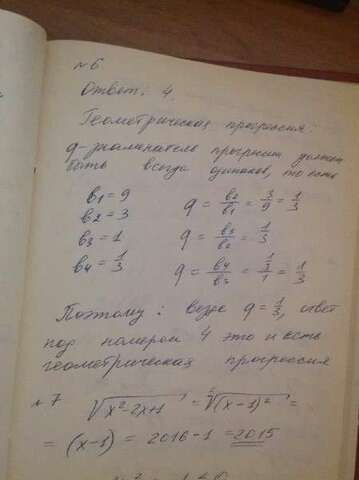 №6
Ответ: 4.
Геометрическая прогрессия:
q-знаменатель прогрессии должен
быть всегда одинаков, то есть
b₁ = 9
b₂ = 3 q = b₂/b₁ = 3/9 = 1/3
b₃ = 1 q = b₃/b₂ = 1/3
b₄ = 1/3 q = b₄/b₃ = 1/3/1 = 1/3
Поэтому: везде q = 1/3, ответ
под номером 4 это и есть
геометрическая прогрессия
№7 √x²-2x+1 = √(x-1)² =
= (x-1) = 2016-1 = 2015